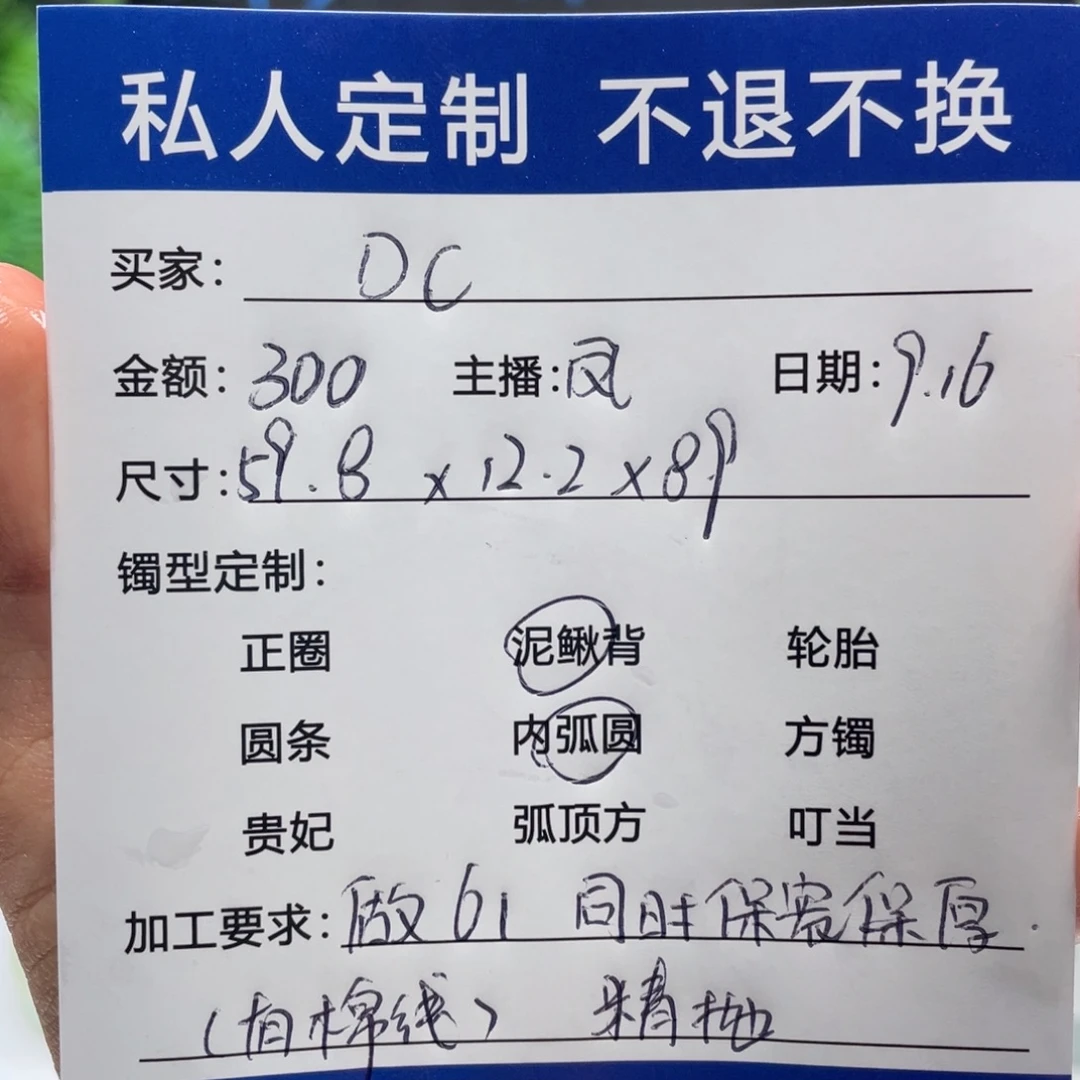 私人定制 不退不换
买家: DC
金额: 300 主播: 凤 日期: 9.16
尺寸: 59.8 x 12.2 x 8.9
镯型定制:
正圈 泥鳅背 轮胎
圆条 内弧圆 方镯
贵妃 弧顶方 叮当
加工要求: 做61 同时保宽保厚.
(有棉线) 精抛